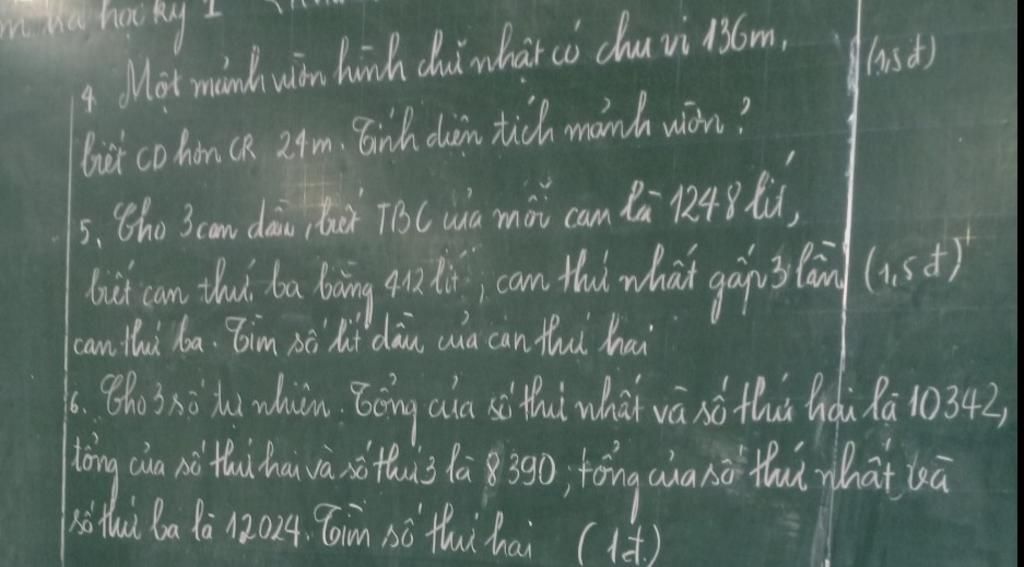 học kỳ I
4. Một mảnh vườn hình chữ nhật có chu vi 136m, (1,5đ)
biết CD hơn CR 24m. Tính diện tích mảnh vườn?
5, Cho 3 can dầu, biết TBC của mỗi can là 1248 lít,
biết can thứ ba bằng 412 lít, can thứ nhất gấp 3 lần (1,5đ)
can thứ ba. Tìm số lít dầu của can thứ hai
6. Cho 3 số tự nhiên. Tổng của số thứ nhất và số thứ hai là 10342,
tổng của số thứ hai và số thứ 3 là 8390, tổng của số thứ nhất và
số thứ ba là 12024. Tìm số thứ hai (1đ)